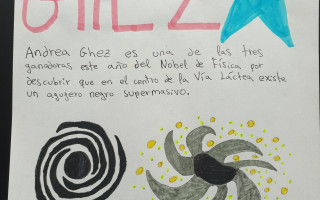 GHEZ
Andrea Ghez es una de las tres
ganadoras este año del Nobel de Física por
descubrir que en el centro de la Vía Láctea existe
un agujero negro supermasivo.